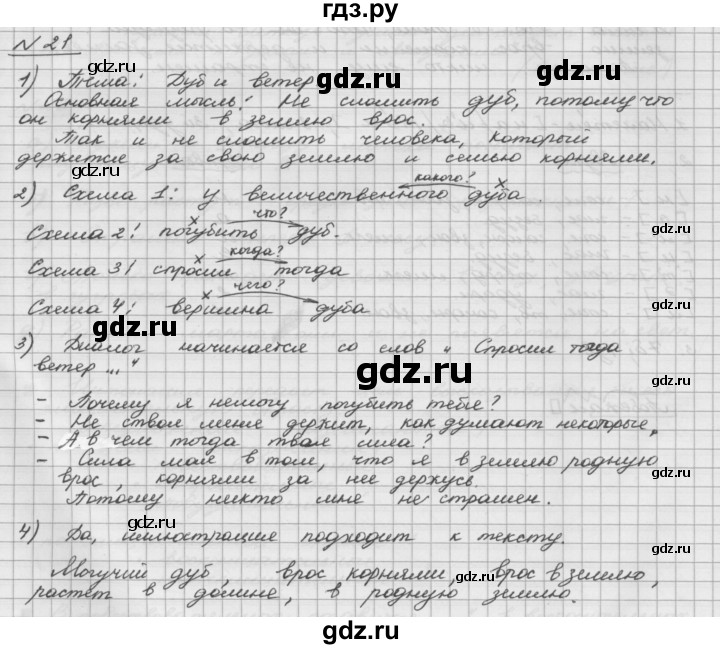 гдз.ру
№ 21
1) Тема: Дуб и ветер gdz.ru
Основная мысль: Не сломить дуб, потому что
он корнями в землю врос. gdz.ru
Так и не сломить человека, который
держится за свою землю и семью корнями.
gdz.ru
какого?
2) Схема 1: у величественного дуба.
х
х что?
Схема 2: погубить дуб. gdz.ru
х когда?
Схема 3: спросил тогда gdz.ru
х чего?
Схема 4: вершина дуба gdz.ru
gdz.ru
3) Диалог начинается со слов "Спросил тогда
ветер..." gdz.ru
- Почему я немогу погубить тебя?
- Не ствол меня держит, как думают некоторые,
- А в чем тогда твоя сила? gdz.ru
gdz.ru
- Сила моя в том, что я в землю родную
врос, корнями за нее держусь.
Потому никто мне не страшен. gdz.ru
4) Да, иллюстрация подходит к тексту.
gdz.ru gdz.ru
Могучий дуб, врос корнями, gdz.ru врос в землю,
растет в долине, в родную землю.
gdz.ru
gdz.ru